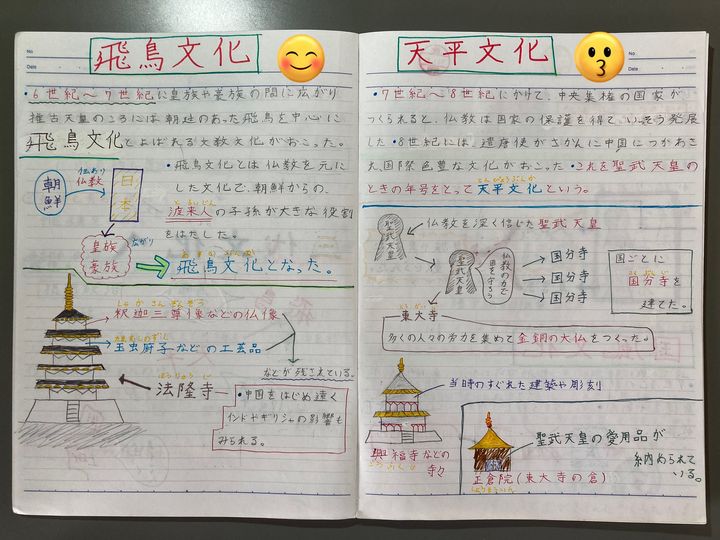 No
Date
飛鳥文化
・6世紀～7世紀に皇族や豪族の間に広がり
推古天皇のころには朝廷のあった飛鳥を中心に
飛鳥文化とよばれる仏教文化がおこった。
朝鮮
仏教
日本
・飛鳥文化とは仏教を元に
した文化で、朝鮮からの、
とらいじん
渡来人の子孫が大きな役割
をはたした。
皇族
豪族
あすかぶんか
飛鳥文化となった。
しゃかさんぞんぞう
釈迦三尊像などの仏像
たまむしのずし
玉虫厨子などの工芸品
などが残されている。
ほうりゅうじ
法隆寺
・中国をはじめ遠く
インドやギリシャの影響も
みられる。
No
Date
天平文化
・7世紀～8世紀にかけて、中央集権の国家が
つくられると、仏教は国家の保護を得て、いっそう発展
した・8世紀には、遣唐使がさかんに中国につかわさ
れ、国際色豊な文化がおこった・これを聖武天皇の
てんぴょうぶんか
ときの年号をとって天平文化という。
聖武天皇
仏教を深く信じた聖武天皇
聖武天皇
仏教の力で国を守ろう
国分寺
国分寺
国分寺
国ごとに
国分寺を
建てた。
東大寺
多くの人々の労力を集めて金銅の大仏をつくった。
当時のすぐれた建築や彫刻
興福寺などの
こうふくじ
寺々
聖武天皇の愛用品が
納められて
いる。
正倉院(東大寺の倉)
しょうそういん